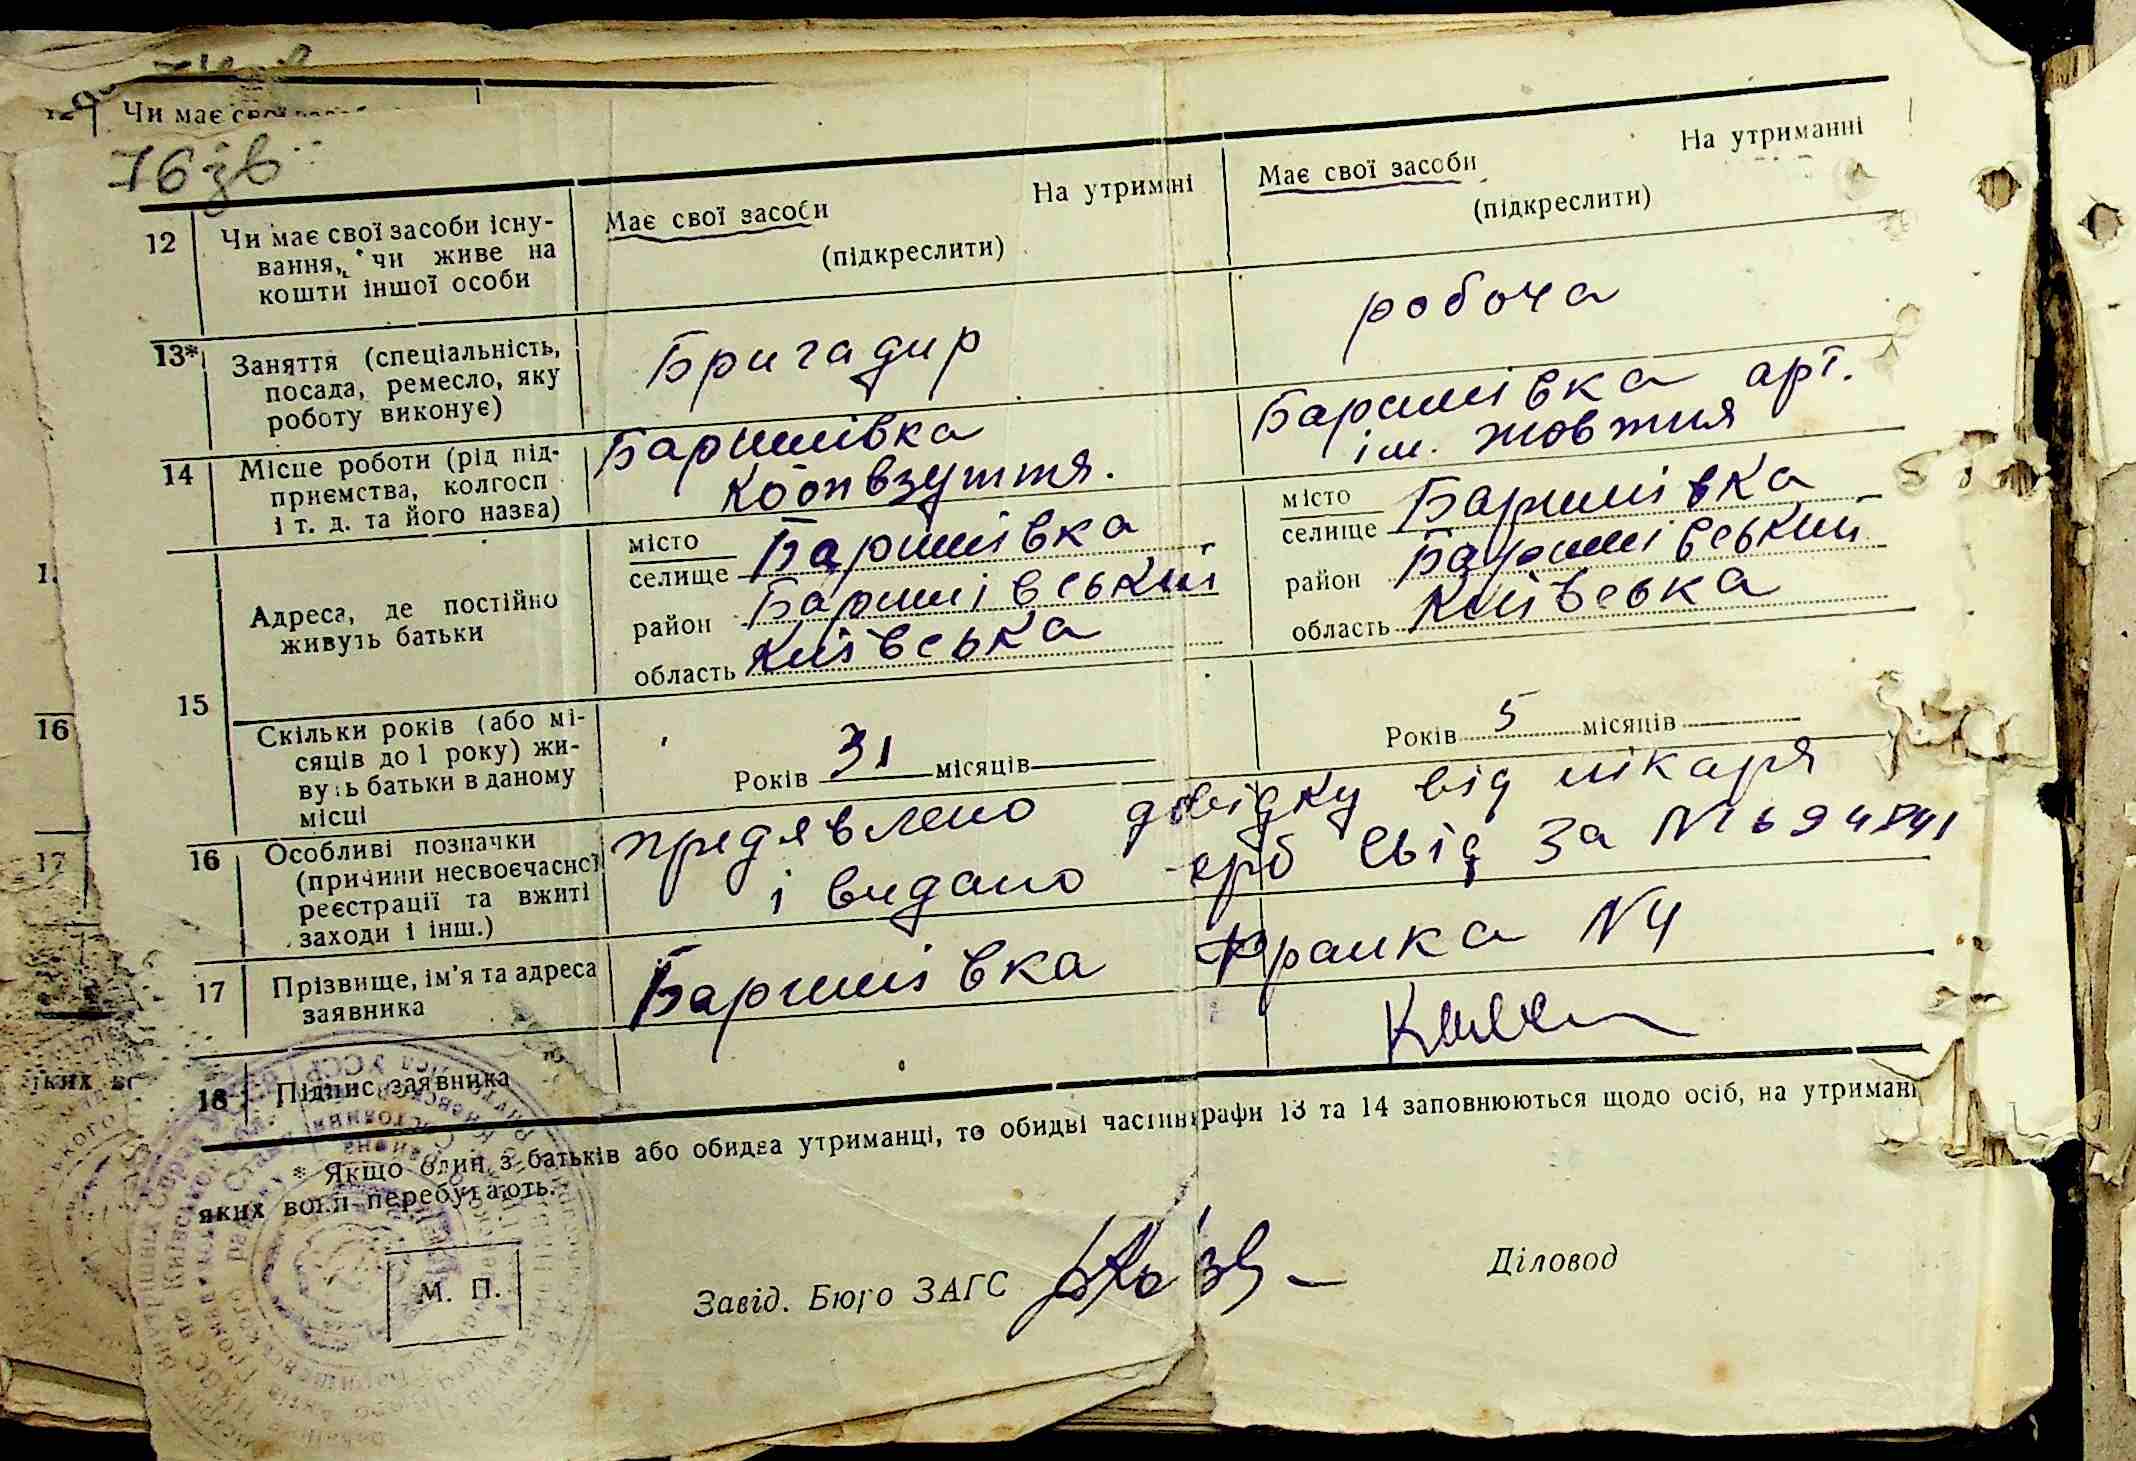 Чи має свої
76 зв
12 Чи має свої засоби існу-
вання, чи живе на
кошти іншої особи
Має свої засоби На утримані
(підкреслити)
Має свої засоби На утриманні
(підкреслити)
13* Заняття (спеціальність,
посада, ремесло, яку
роботу виконує)
Бригадир
робоча
14 Місце роботи (рід під-
приємства, колгосп
і т. д. та його назва)
Баришівка
Коопвзуття.
Баришівка арт.
ім. жовтня
15 Адреса, де постійно
живуть батьки
місто
селище Баришівка
район Баришівський
область Київська
місто
селище Баришівка
район Баришівський
область Київська
Скільки років (або мі-
сяців до 1 року) жи-
вуть батьки в даному
місці
Років 31 місяців
Років 5 місяців
16 Особливі позначки
(причини несвоєчасної
реєстрації та вжиті
заходи і інш.)
предявлено довідку від лікаря
і видано свід за №
17 Прізвище, ім'я та адреса
заявника
Баришівка Франка N4
18 Підпис заявника
* Якщо один з батьків або обидва утриманці, то обидві частини графи 13 та 14 заповнюються щодо осіб, на утримані
яких вони перебувають.
М. П.
Завід. Бюро ЗАГС
Діловод
16
17
яких во